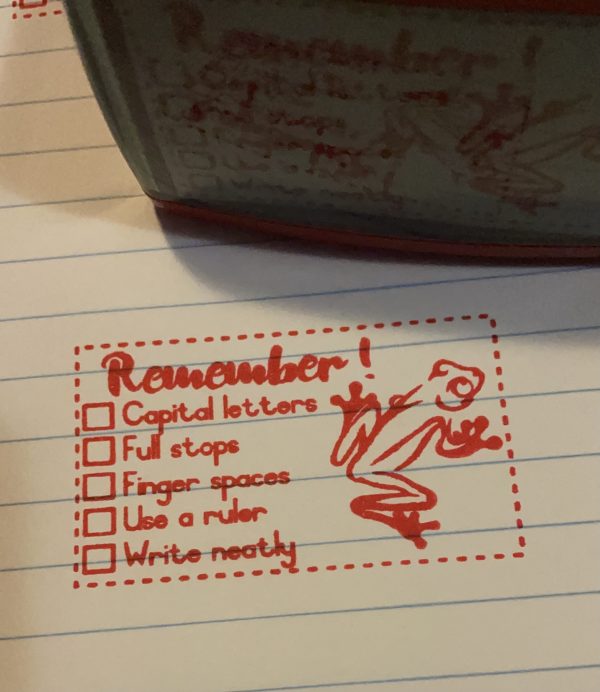 Remember!
Capital letters
Full stops
Finger spaces
Use a ruler
Write neatly